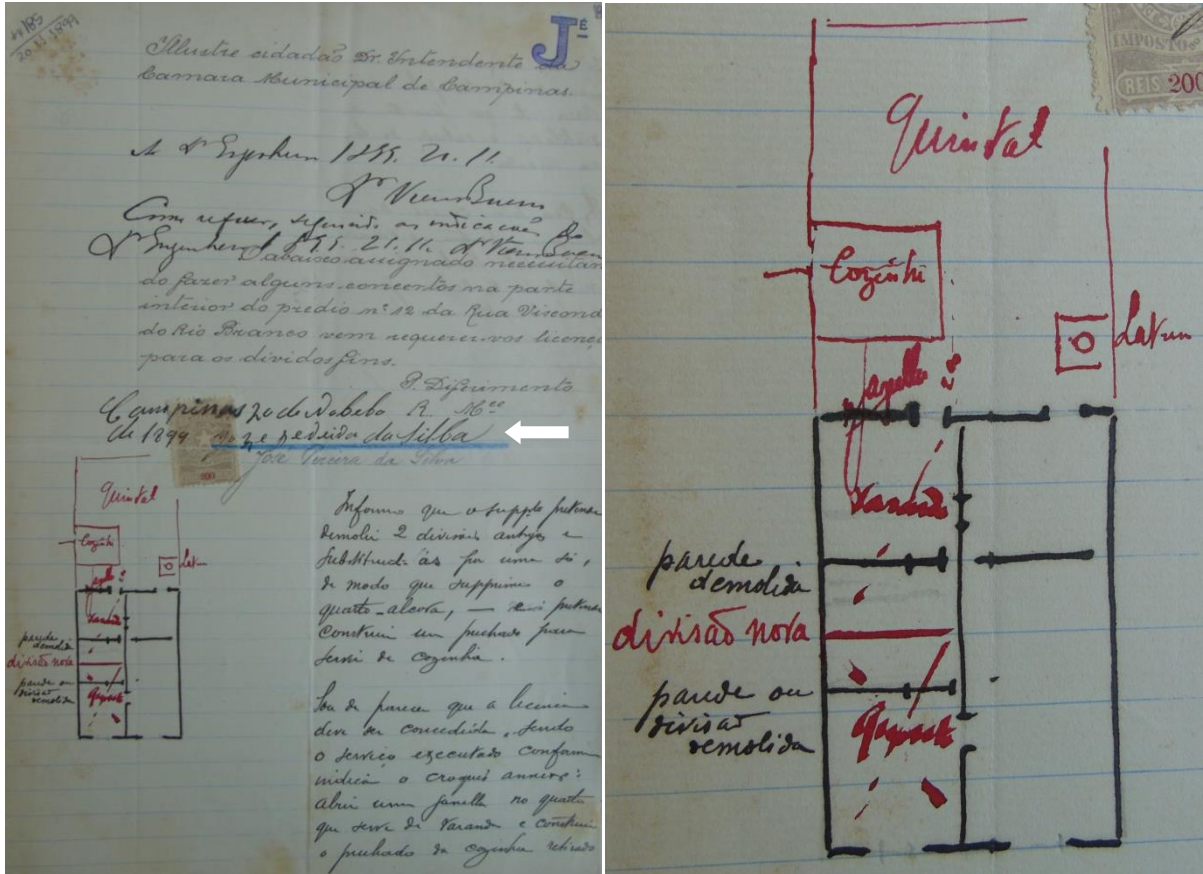 nº 185
20.11.1899
Jē
Illustre cidadão Dr. Intendente da
Camara Municipal de Campinas.
Ao Dr Engenheiro 1899. 21. 11.
Dr Vieira Bueno
Como requer, seguindo as indicações do
Dr Engenheiro 1899. 21. 11. Dr Vieira Bueno
O abaixo assignado necessitan
do fazer alguns concertos na parte
interior do predio nº 12 da Rua Viscond
do Rio Branco vem requerer-vos licenç
para os dividos fins.
P. Diferimento
R. Mce
Campinas 20 de Nobebo
de 1899 Joze Pedreida da Silba
José Pereira da Silva
200
Quintal
Cozinha
Latrin
Varanda
parede
demolida
divisão nova
parede ou
divisão
demolida
Informo que o suppte pretende
demolir 2 divisões antigas e
substituil-as por uma só,
de modo que supprima o
quarto-alcova, — pretende
construir um puchado para
servir de cozinha.
Sou de parecer que a licença
deve ser concedida, sendo
o serviço executado conforme
indica o croquis annexo:
abrir uma janella no quarto
que serve de varanda e construir
o puchado da cozinha retirado
IMPOSTOS
REIS 200
Quintal
Cozinha
Latrin
Varanda
parede
demolida
divisão nova
parede ou
divisão
demolida